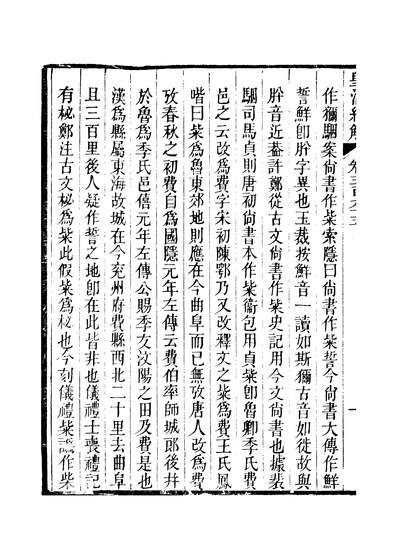 作獮駰案尚書作粊索隱曰尚書作粊誓今尚書大傳作鮮
誓鮮卽肸字異也玉裁按鮮音一讀如斯獮古音如徙故與
肸音近葢許鄭從古文尚書作粊史記用今文尚書也據裴
駰司馬貞則唐初尚書本作粊衞包用貞粊卽魯卿季氏費
邑之云改爲費字宋初陳鄂乃又改釋文之粊爲費王氏鳳
喈曰粊爲魯東郊地則應在今曲阜而已無攷唐人改爲費
攷春秋之初費自爲國隱元年左傳云費伯率師城郎後幷
於魯爲季氏邑僖元年左傳公賜季友汶陽之田及費是也
漢爲縣屬東海故城在今兖州府費縣西北二十里去曲阜
且三百里後人疑作誓之地卽在此皆非也儀禮士喪禮記
有柲鄭注古文柲爲粊此假粊爲柲也今刻儀禮粊譌作柴